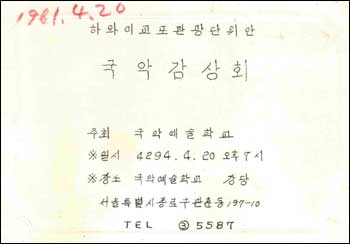 1961.4.20
하와이교포관광단위안
국악감상회
주최 국악예술학교
※일시 4294.4.20 오후7시
※장소 국악예술학교 강당
서울특별시종로구관훈동197-10
TEL ③5587